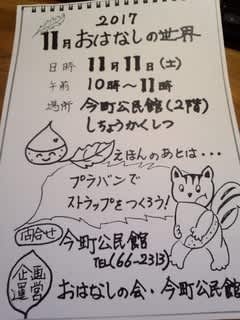 2017
11月おはなしの世界
日時 11月11日(土)
午前 10時〜11時
場所 今町公民館(2階)
しちょうかくしつ
えほんのあとは・・・
プラバンで
ストラップをつくろう!
問合せ 今町公民館
TEL(66-2313)
企画
運営
おはなしの会・今町公民館